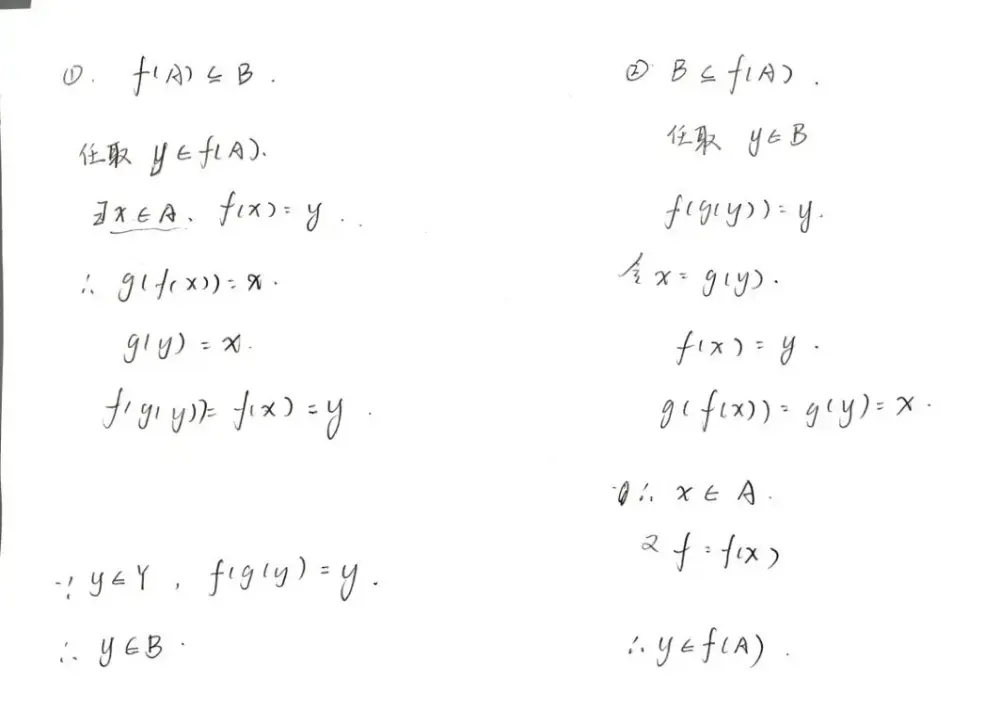 ①. f(A) ⊆ B.
任取 y ∈ f(A).
∃x ∈ A、f(x) = y ..
∴ g(f(x)) = x.
g(y) = x.
f(g(y)) = f(x) = y .
∵ y ∈ Y , f(g(y) = y .
∴ y ∈ B .
② B ⊆ f(A) .
任取 y ∈ B
f(g(y)) = y.
令 x = g(y).
f(x) = y .
g(f(x)) = g(y) = x .
∴ x ∈ A .
f = f(x)
∴ y ∈ f(A) .